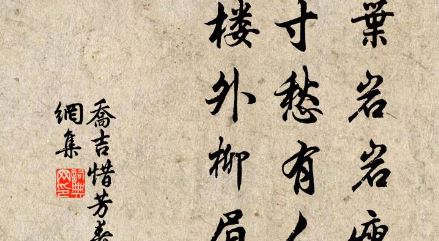 葉岩岩瘦
寸愁有人
楼外柳眉
喬吉惜芳春
網集